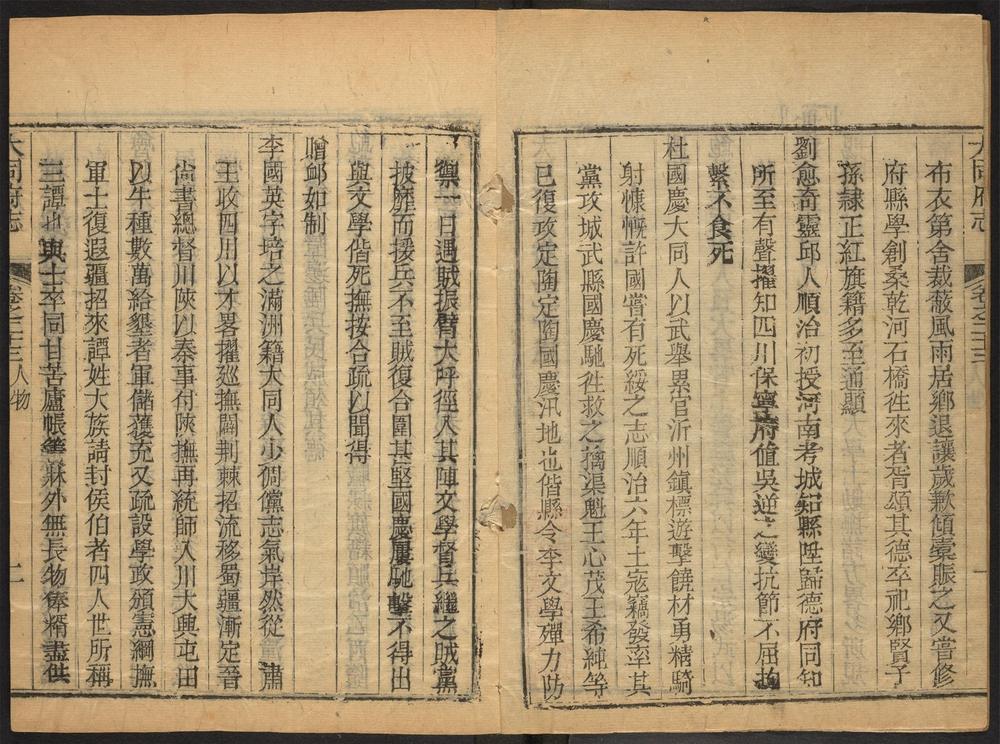 大同府志
卷之二十三人物
布衣第舍裁蔽風雨居鄉退讓歲歉傾囊賑之又嘗修
府縣學創桑乾河石橋徃來者胥頌其德卒祀鄉賢子
孫隸正紅旗籍多至通顯
劉愈奇靈邱人順治初授河南考城知縣陞歸德府同知
所至有聲擢知四川保寧府值吳逆之變抗節不屈拘
繫不食死
杜國慶大同人以武舉累官沂州鎮標遊擊饒材勇精騎
射慷慨許國嘗有死綏之志順治六年土宼竊發率其
黨攻城武縣國慶馳徃救之擒渠魁王心茂王希純等
已復攻定陶定陶國慶汛地也偕縣令李文學殫力防
禦一日遇賊振臂大呼徑入其陣文學督兵繼之賊黨
披靡而援兵不至賊復合圍甚堅國慶屢馳擊不得出
與文學偕死撫按合疏以聞得
贈䘏如制
李國英字培之滿洲籍大同人少倜儻志氣岸然從 肅
王收四川以才畧擢廵撫闢荆棘招流移蜀疆漸定晉
尚書總督川陝以秦事付陝撫再統師入川大興屯田
以牛種數萬給墾者軍儲獲充又疏設學政頒憲綱撫
軍士復遐疆招來譚姓大族請封侯伯者四人世所稱
三譚也與士卒同甘苦廬帳 蔴外無長物俸糈盡供
大同府志
卷之二十三人物
二